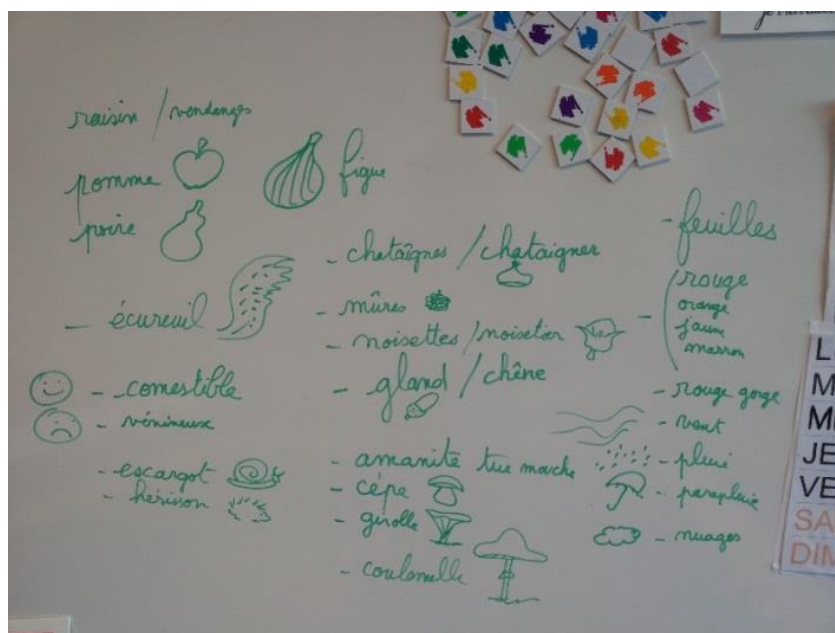 raisin / vendanges
pomme
figue
poire
- écureuil
- comestible
- vénineux
- escargot
- hérisson
- chataîgnes / chataigner
- mûres
- noisettes / noisetier
- gland / chêne
- amanite tue mouche
- cépe
- girolle
- coulemelle
- feuilles
- rouge
orange
jaune
marron
- rouge gorge
- vent
- pluie
- parapluie
- nuages
L
M
ME
JE
VE
SA
DIM